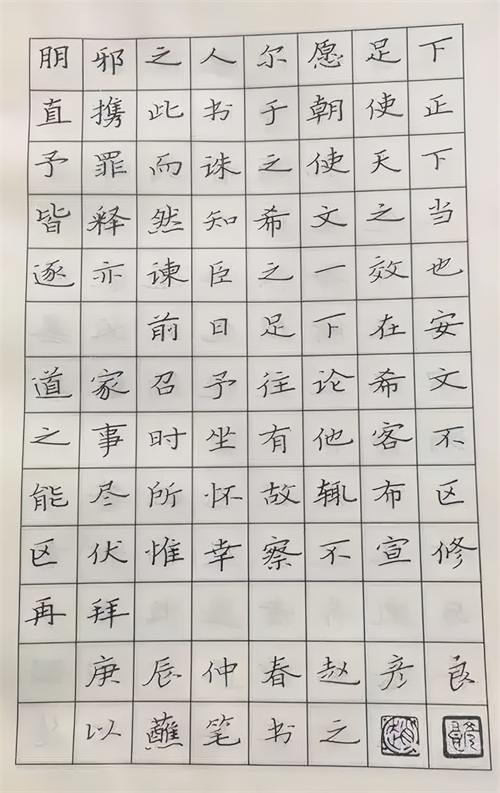 朋邪之人尔愿足下
直携此书于朝使正
予罪而诛之使天下
皆释然知希文之当
逐亦谏臣之一效也
前日足下在安
道家召予往论希文
之事时坐有他客不
能尽所怀故辄布区
区伏惟幸察不宣修
再拜
庚辰仲春赵彦良
以蘸笔书之